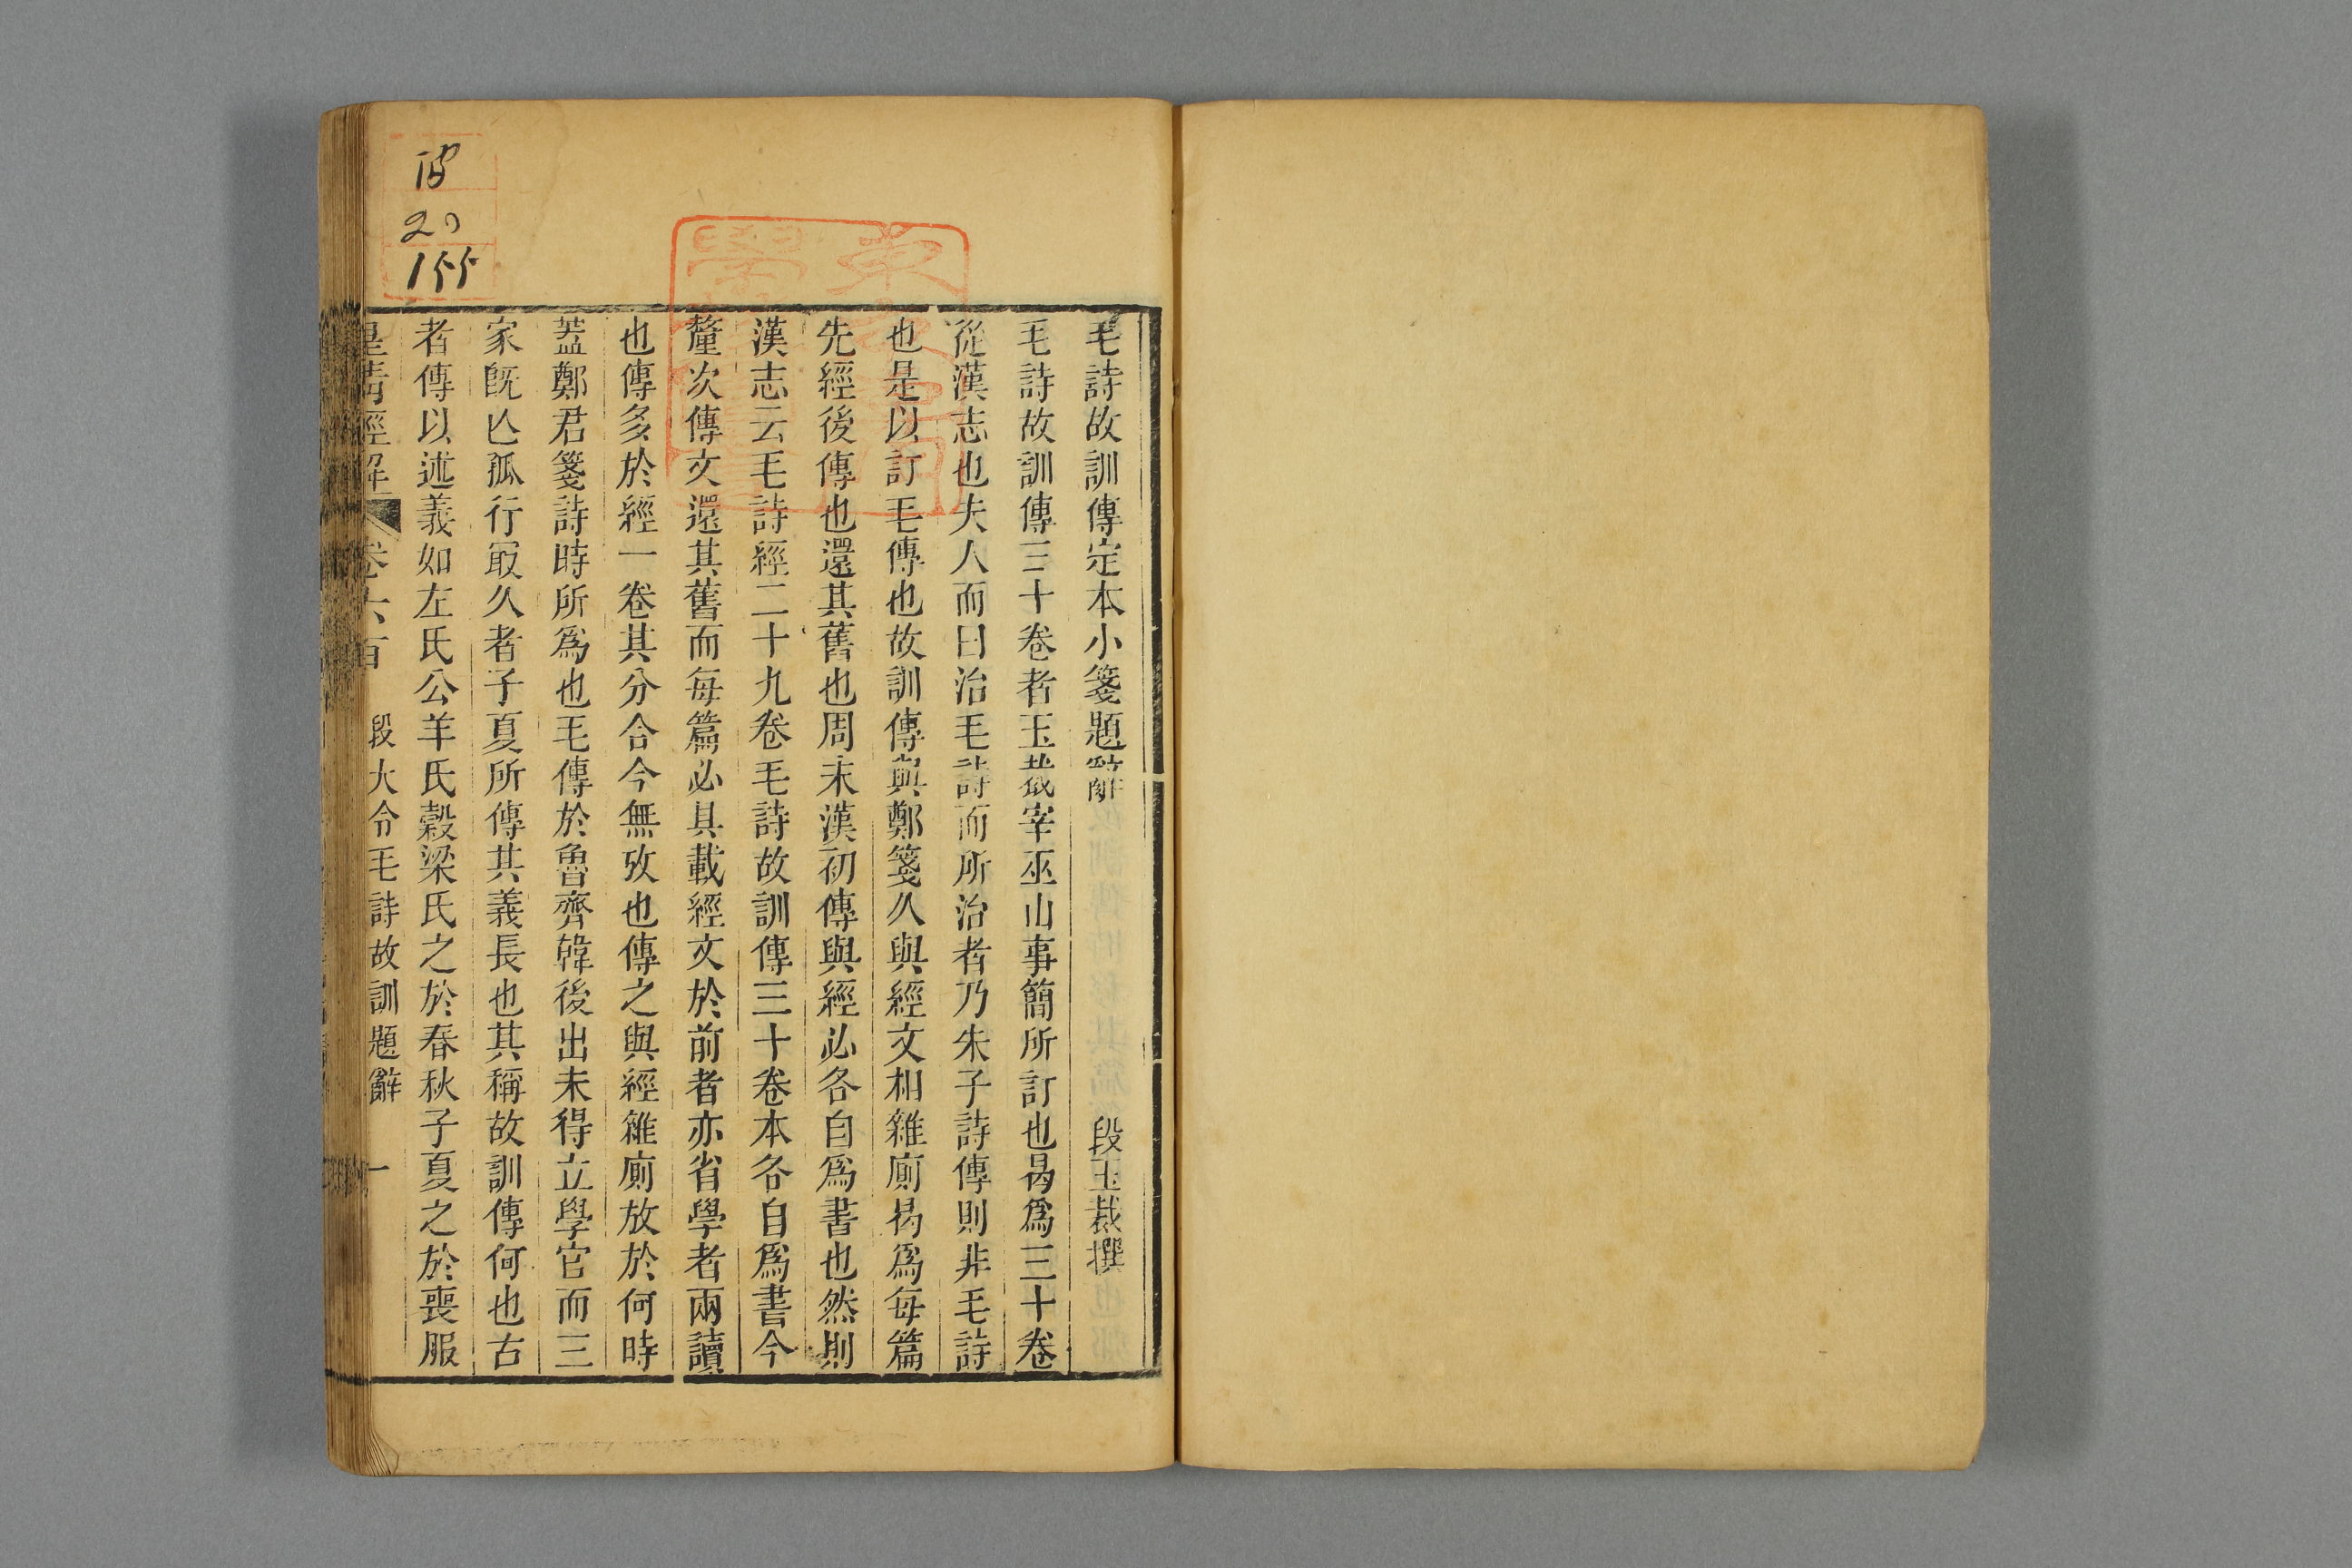 毛詩故訓傳定本小箋題辭
段玉裁撰
毛詩故訓傳三十卷者玉裁宰巫山事簡所訂也曷爲三十卷
從漢志也夫人而曰治毛詩而所治者乃朱子詩傳則非毛詩
也是以訂毛傳也故訓傳與鄭箋久與經文相雜廁曷爲每篇
先經後傳也還其舊也周末漢初傳與經必各自爲書也然則
漢志云毛詩經二十九卷毛詩故訓傳三十卷本各自爲書今
釐次傳文還其舊而每篇必具載經文於前者亦省學者兩讀
也傳多於經一卷其分合今無攷也傳之與經雜廁放於何時
葢鄭君箋詩時所爲也毛傳於魯齊韓後出未得立學官而三
家旣亾孤行冣久者子夏所傳其義長也其稱故訓傳何也古
者傳以述義如左氏公羊氏榖梁氏之於春秋子夏之於喪服
皇淸經解 卷六百 段大令毛詩故訓題辭 一
20
155